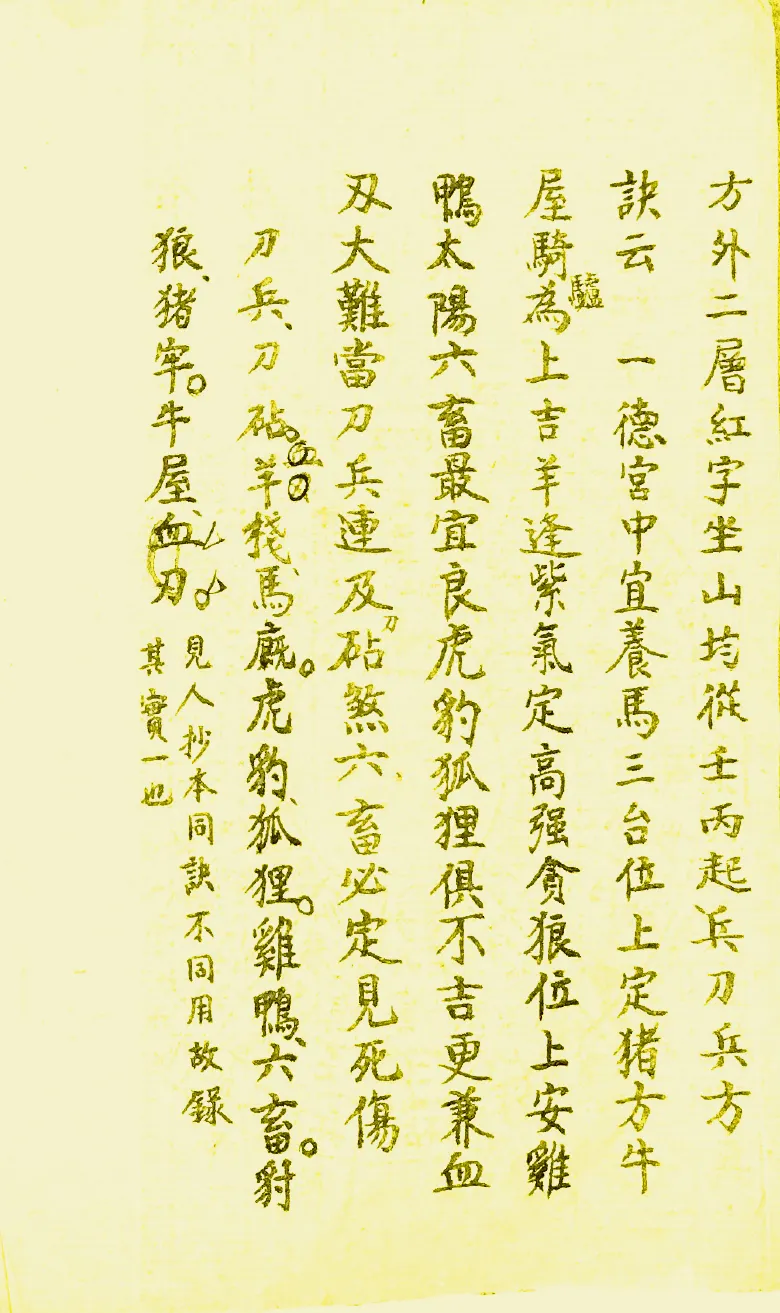 方外二層紅字坐山均從壬丙起兵刀兵方
訣云　一德宮中宜養馬三台位上定猪方牛
屋騎驢為上吉羊逢紫氣定高强貪狼位上安雞
鴨太陽六畜最宜良虎豹狐狸俱不吉更兼血
刃大難當刀兵連及刀砧煞六畜必定見死傷
刀兵、刀砧。血刃。羊棧馬廐。虎豹、狐狸。雞鴨、六畜。豺
狼、猪牢。牛屋、血刃。
見人抄本同訣不同用故錄
其實一也